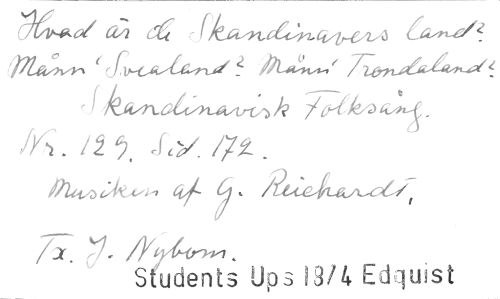 Hvad är de Skandinavers land?
Månn' Svealand? Månn' Trondaland?
Skandinavisk Folksång.
Nr. 129. Sid. 172.
Musiken af G. Reichardt,
Tx. J. Nybom.
Students Ups 18/4 Edquist